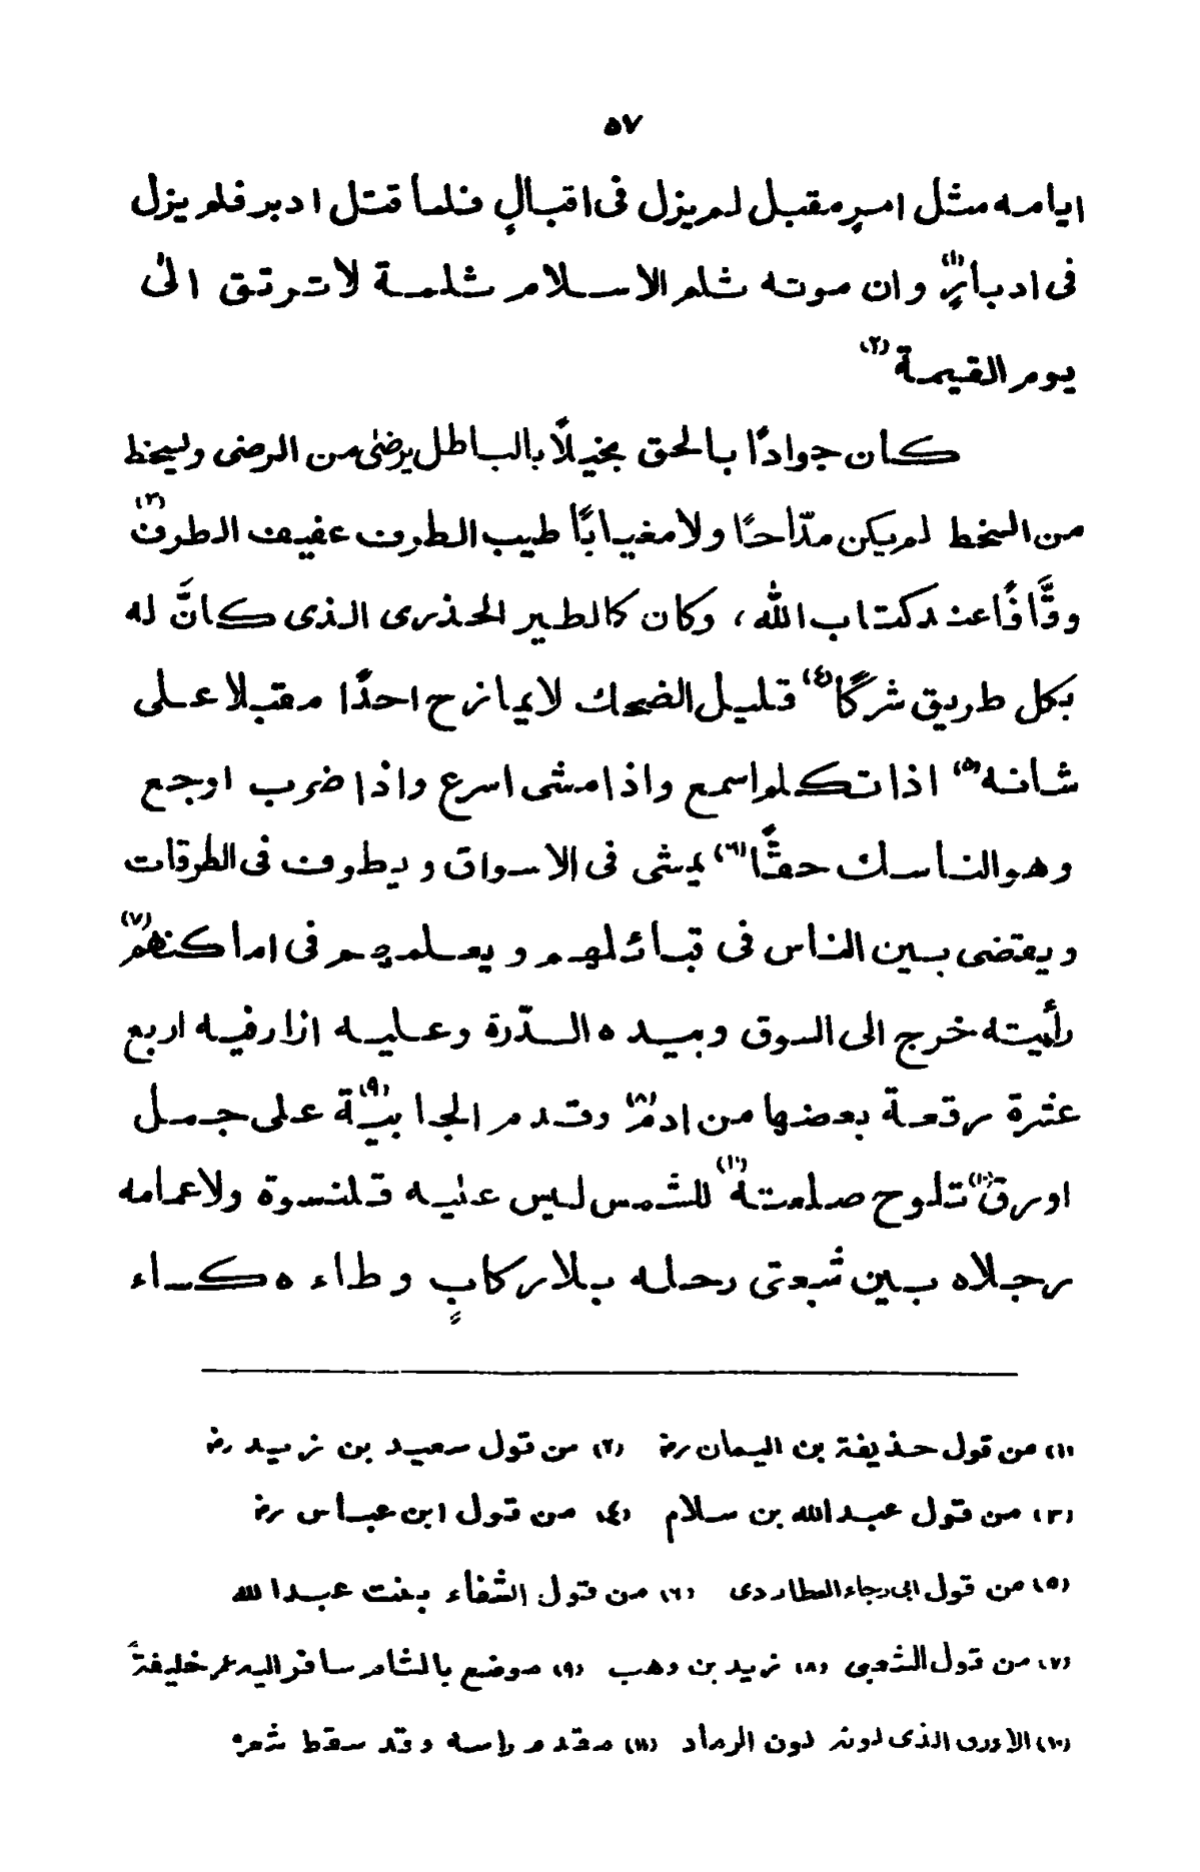 ٥٧
ايامه مثل امرٍ مقبل لم يزل فى اقبالٍ فلما قتل ادبر فلم يزل
فى ادبارٍ (١) وان موته ثلم الاسلام ثلمة لا ترتق الىٰ
يوم القيمة (٢)
كان جوادًا بالحق بخيلًا بالباطل يرضىٰ من الرضى ويسخط
من السخط لم يكن مدّاحًا ولا مغيابًا طيب الطرف عفيف الطرف (٣)
وقَّافًا عند كتاب الله، وكان كالطير الحذرى الذى كانَّ له
بكل طريق شركًا (٤) قليل الضحك لا يمازح احدًا مقبلا على
شانه (٥) اذا تكلم اسمع واذا مشى اسرع واذا ضرب اوجع
وهو الناسك حقًّا (٦) يمشى فى الاسواق ويطوف فى الطرقات
ويقضى بين الناس فى قبائلهم ويعلمهم فى اماكنهم (٧)
رأيته خرج الى السوق وبيده الدّرة وعليه ازار فيه اربع
عشرة رقعة بعضها من ادم (٨) وقدم الجابيّة (٩) على جمل
اورق (١٠) تلوح صلعته (١١) للشمس ليس عليه قلنسوة ولا عمامه
رجلاه بين شُعبتى رحله بلا ركابٍ وطاءه كساء
(١) من قول حذيفة بن اليمان رض (٢) من قول سعيد بن زيد رض
(٣) من قول عبد الله بن سلام (٤) من قول ابن عباس رض
(٥) من قول ابى رجاء العطاردى (٦) من قول الشفاء بنت عبد الله
(٧) من قول الشعبى (٨) زيد بن وهب (٩) موضع بالشام سافر اليه عمر خليفةً
(١٠) الاورق الذى لونه لون الرماد (١١) مقدم راسه وقد سقط شعره